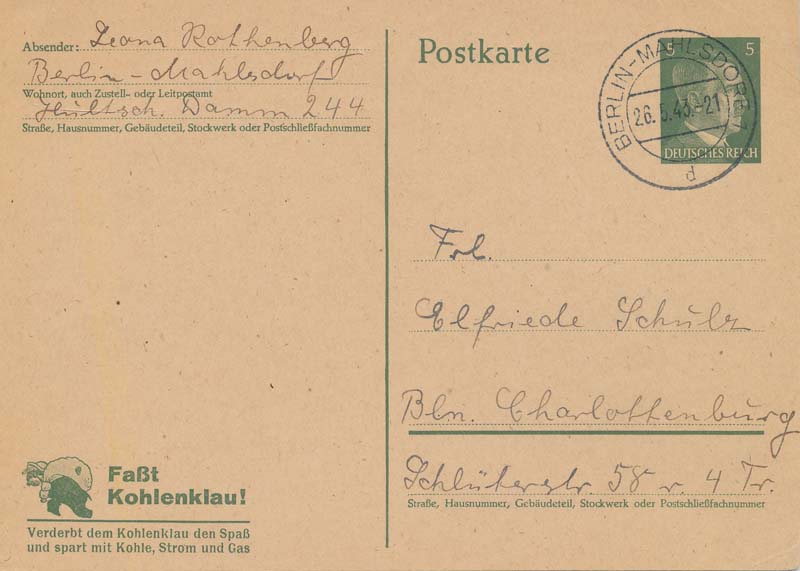 Absender: Leona Rothenberg
Berlin-Mahlsdorf
Wohnort, auch Zustell- oder Leitpostamt
Hültsch. Damm 244
Straße, Hausnummer, Gebäudeteil, Stockwerk oder Postschließfachnummer
Postkarte
5 5
DEUTSCHES REICH
BERLIN-MAHLSDORF 1
26.5.43.-21
d
Frl.
Elfriede Schulz
Bln. Charlottenburg
Schlüterstr. 58 v. 4 Tr.
Straße, Hausnummer, Gebäudeteil, Stockwerk oder Postschließfachnummer
Faßt
Kohlenklau!
Verderbt dem Kohlenklau den Spaß
und spart mit Kohle, Strom und Gas